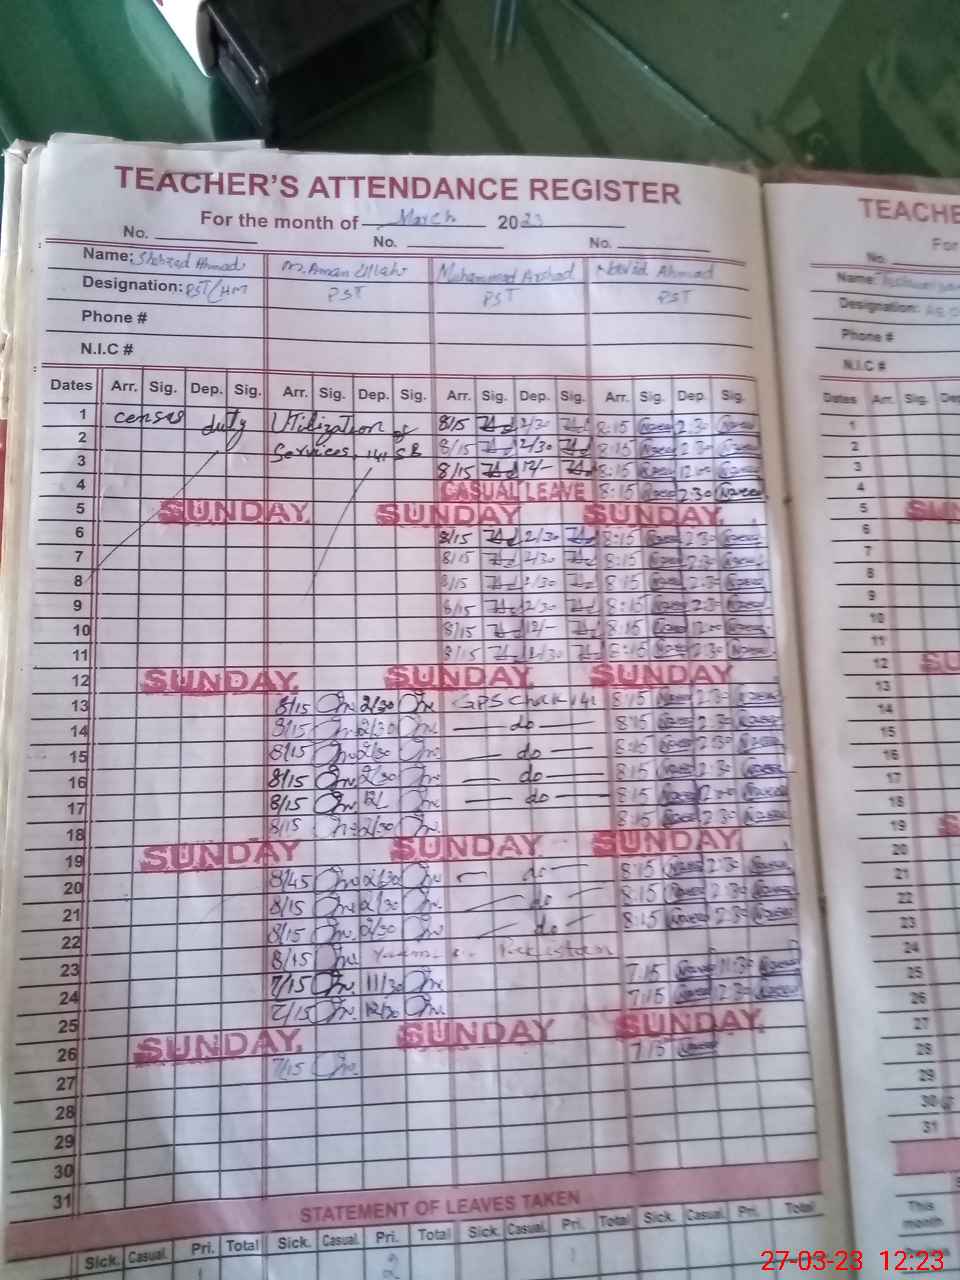 TEACHER'S ATTENDANCE REGISTER
For the month of March 2023
No. No. No.
Name: Shehzad Ahmad M. Aman Ullah Muhammad Arshad Navid Ahmad
Designation: PST/HM PST PST PST
Phone #
N.I.C #
Dates Arr. Sig. Dep. Sig. Arr. Sig. Dep. Sig. Arr. Sig. Dep. Sig. Arr. Sig. Dep. Sig.
1 census duty Utilization of 8/15 2/30 8:15 2:30
2 Services, 141 SB 8/15 2/30 8:15 2:30
3 8/15 12/- 8:15 12:00
4 CASUAL LEAVE 8:15 2:30
5 SUNDAY SUNDAY SUNDAY
6 8/15 2/30 8:15 2:30
7 8/15 2/30 8:15 2:30
8 8/15 2/30 8:15 2:30
9 8/15 2/30 8:15 2:30
10 8/15 12/- 8:15 12:00
11 8/15 2/30 8:15 2:30
12 SUNDAY SUNDAY SUNDAY
13 8/15 2/30 GPS Chak 141 8:15 2:30
14 8/15 2/30 — do — 8:15 2:30
15 8/15 2/30 — do — 8:15 2:30
16 8/15 2/30 — do — 8:15 2:30
17 8/15 12/ — do — 8:15 12:00
18 8/15 2/30 8:15 2:30
19 SUNDAY SUNDAY SUNDAY
20 8/45 2/30 — do — 8:15 2:30
21 8/15 2/30 — do — 8:15 2:30
22 8/15 2/30 — do — 8:15 2:30
23 8/15 Pakistan
24 7/15 11/30 7:15 11:30
25 7/15 12/30 7:15 12:30
26 SUNDAY SUNDAY SUNDAY
27 7/15 7:15
28
29
30
31
STATEMENT OF LEAVES TAKEN
Sick. Casual. Pri. Total Sick. Casual. Pri. Total Sick. Casual. Pri. Total Sick. Casual. Pri. Total
2
TEACHE
For
No.
Name:
Designation:
Phone #
N.I.C #
Dates Arr. Sig. De
1
2
3
4
5 SUN
6
7
8
9
10
11
12 SU
13
14
15
16
17
18
19 S
20
21
22
23
24
25
26
27
28
29
30
31
This
month
27-03-23 12:23